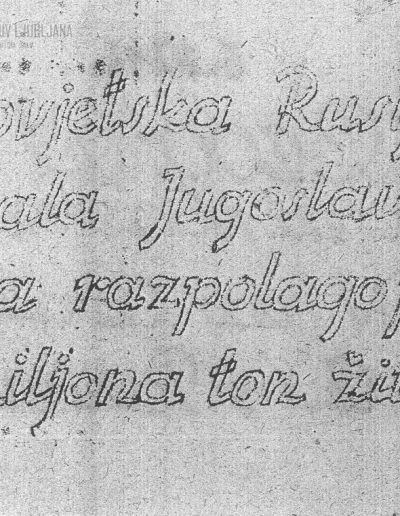 UV LJUBLJANA
ovjetska Rus
ala Jugoslav
a razpolago p
iljona ton ži